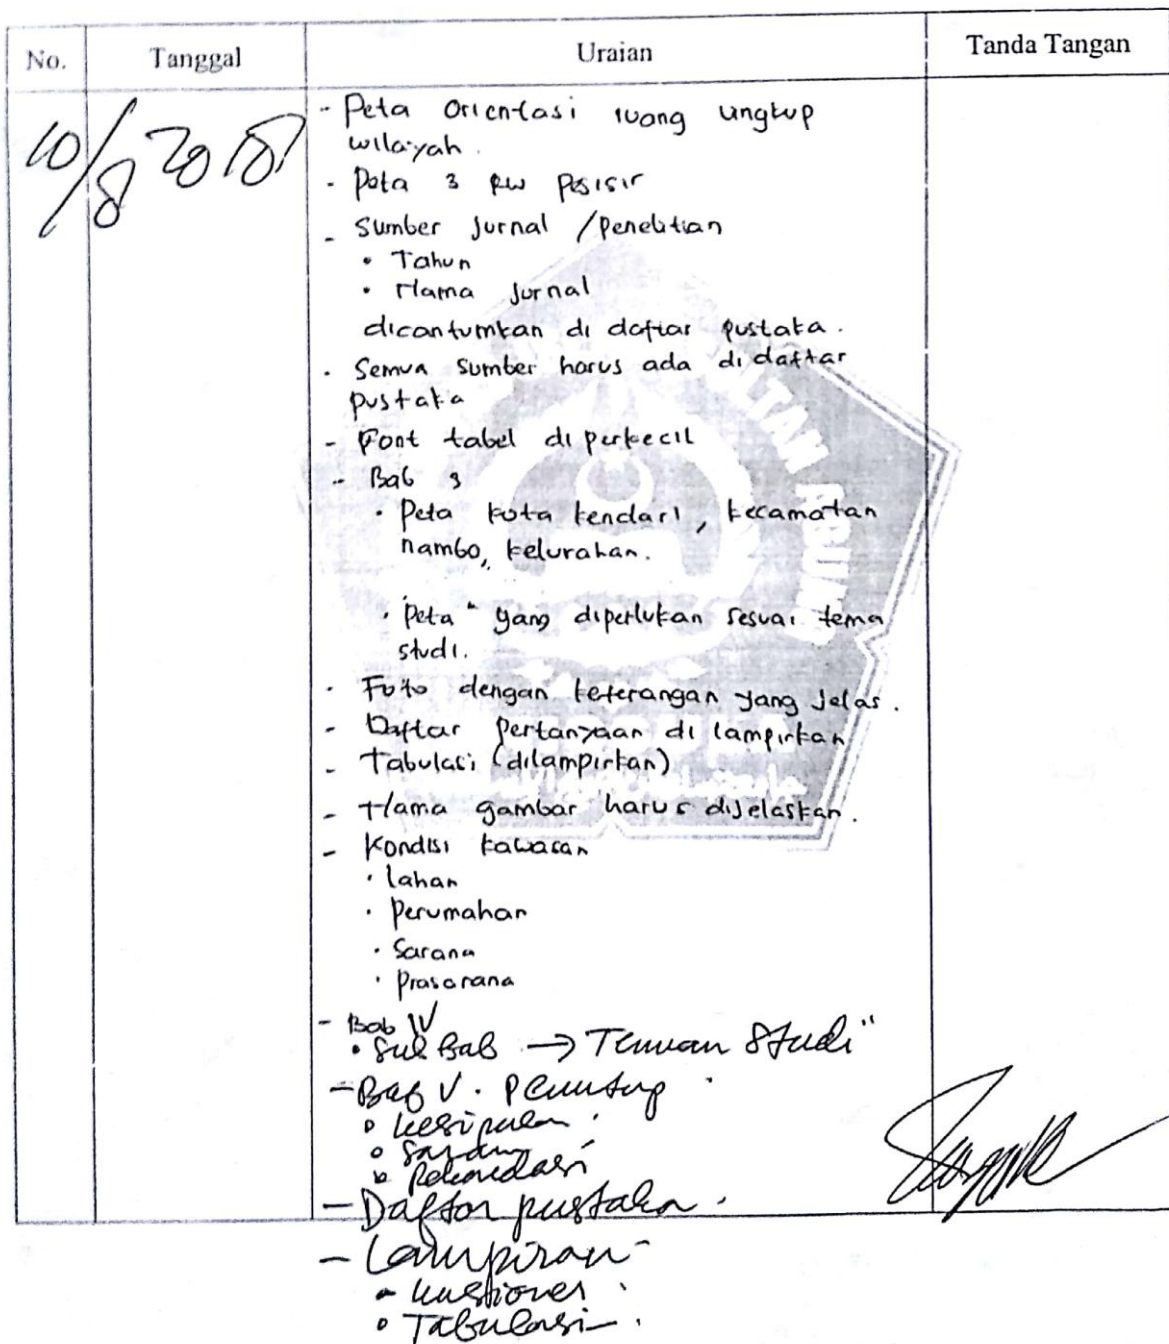 No. Tanggal Uraian Tanda Tangan
10/8 2018
- Peta Orientasi ruang lingkup
wilayah.
- Peta 3 RW Pesisir
- Sumber Jurnal / Penelitian
• Tahun
• Nama Jurnal
dicantumkan di daftar pustaka.
- Semua sumber harus ada di daftar
pustaka
- Font tabel diperkecil
- Bab 3
• Peta kota kendari, kecamatan
nambo, kelurahan.
• Peta" yang diperlukan sesuai tema
studi.
- Foto dengan keterangan yang jelas.
- Daftar Pertanyaan di lampirkan
- Tabulasi (dilampirkan)
- Nama gambar harus dijelaskan.
- Kondisi kawasan
• lahan
• Perumahan
• Sarana
• Prasarana
- Bab IV
• Sub Bab → Temuan Studi"
- Bab V. Penutup
• kesipulan
• Saran
• Rekomedasi
- Daftar pustaka.
- Lampiran
• kuestioner
• Tabulasi